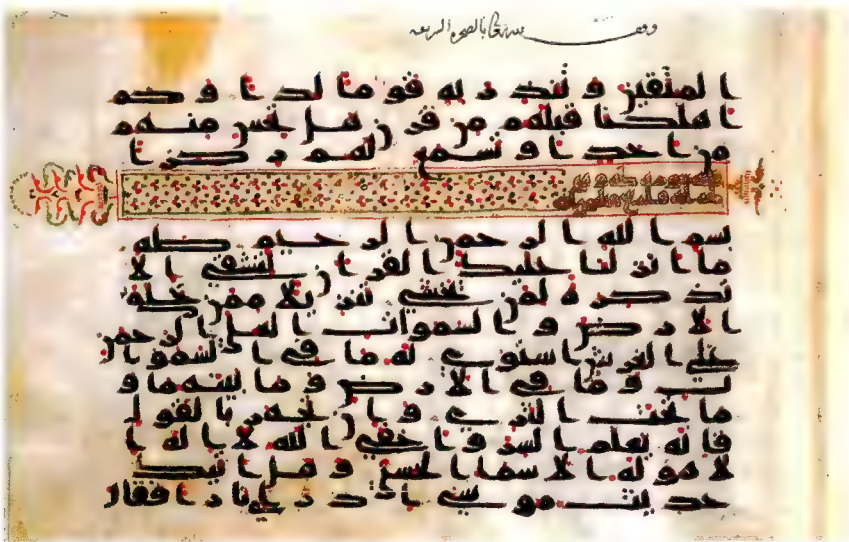 وقف بالصخرة الشريفة
المتقين وتنذر به قوما لدا وكم
اهلكنا قبلهم من قرن هل تحس منهم
من احد او تسمع لهم ركزا
بسم الله الرحمن الرحيم طه
ما انزلنا عليك القران لتشقى الا
تذكرة لمن يخشى تنزيلا ممن خلق
الارض والسموات العلى الرحمن
على العرش استوى له ما في السموا
ت وما في الارض وما بينهما و
ما تحت الثرى وان تجهر بالقول
فانه يعلم السر واخفى الله لا اله ا
لا هو له الاسما الحسنى وهل اتيك
حديث موسى اذ را نارا فقال